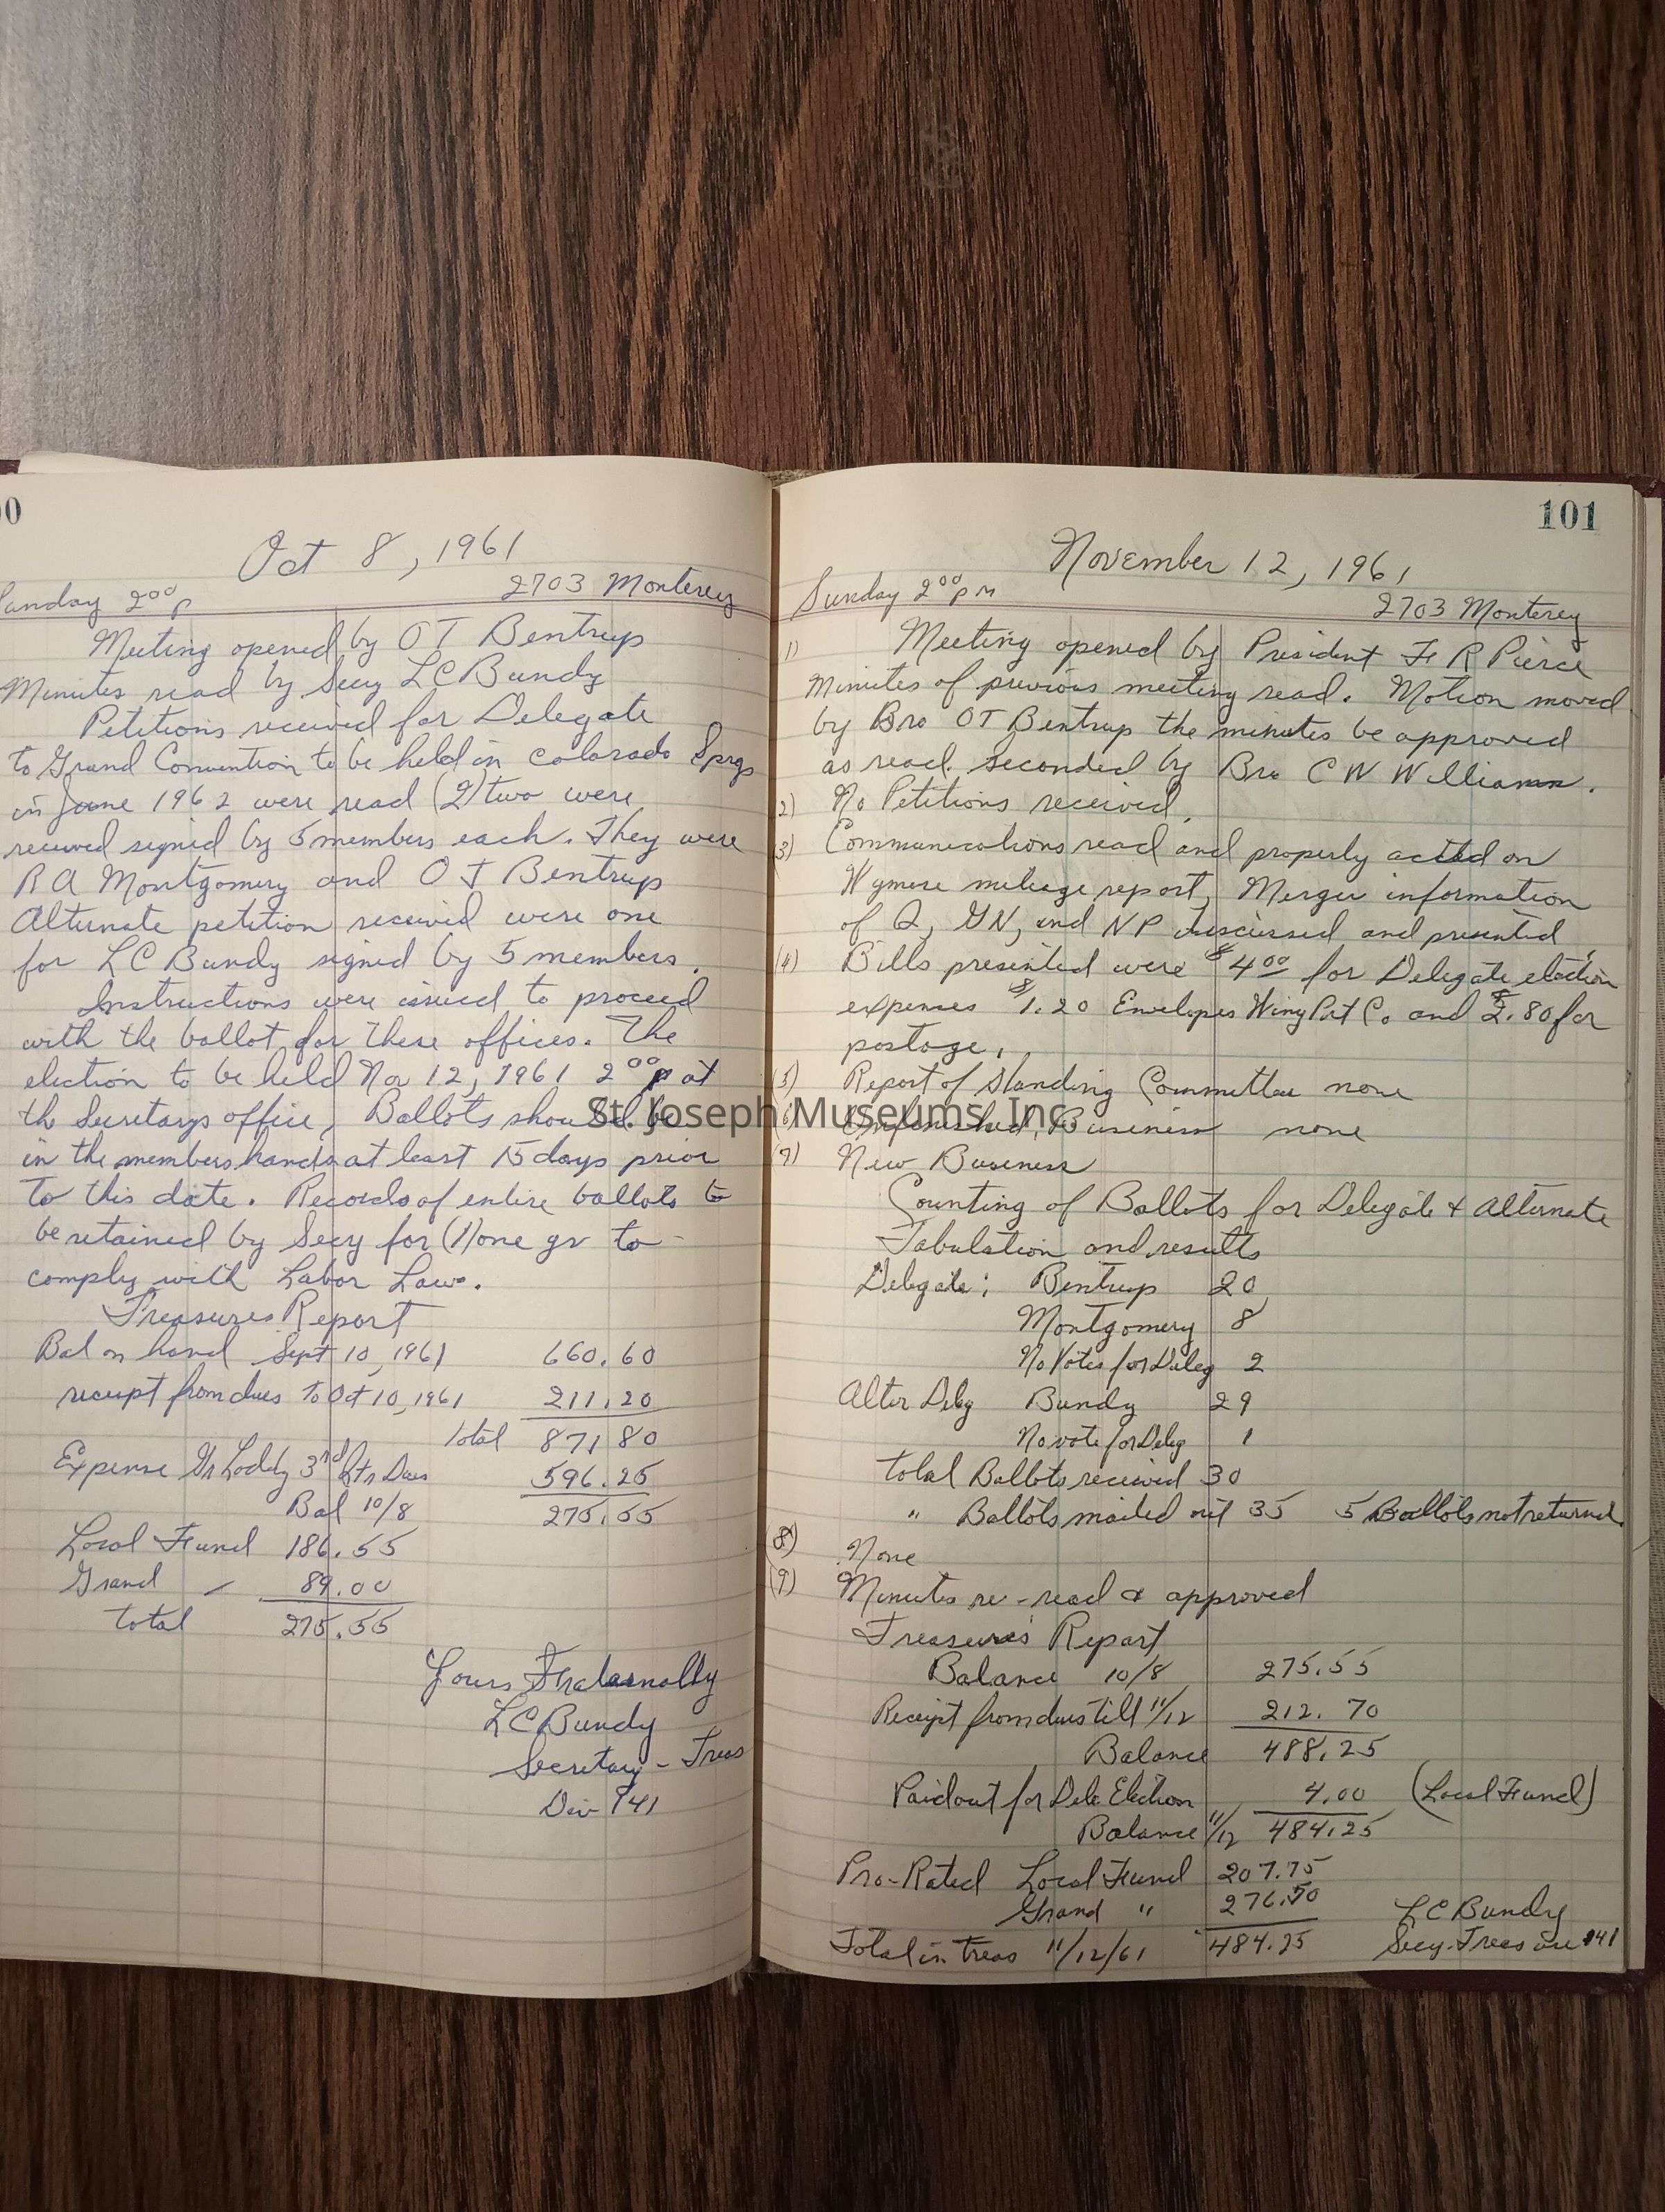 00
Oct 8, 1961
Sunday 2⁰⁰ p
2703 Monterey
Meeting opened by OT Bentrup
Minutes read by Secy LC Bundy
Petitions received for Delegate
to Grand Convention to be held in Colorado Sprgs
in June 1962 were read (2) two were
received signed by 5 members each. They were
RA Montgomery and OT Bentrup
Alternate petition received were one
for LC Bundy signed by 5 members.
Instructions were issued to proceed
with the ballot for these offices. The
election to be held Nov 12, 1961 2⁰⁰ p at
the Secretarys office, Ballots should be
in the members hands at least 15 days prior
to this date. Records of entire ballots to
be retained by Secy for (1) one yr to
comply with Labor Law.
Treasures Report
Bal on hand Sept 10, 1961 660.60
receipt from dues to Oct 10, 1961 211.20
total 871 80
Expense Gr Lodg 3rd Qtr Dues 596.25
Bal 10/8 275.55
Local Fund 186.55
Grand " 89.00
total 275.55
Yours Fraternally
LC Bundy
Secretary - Treas
Div 141
101
November 12, 1961
Sunday 2⁰⁰ pm
2703 Monterey
1) Meeting opened by President F R Pierce
Minutes of previous meeting read. Motion moved
by Bro OT Bentrup the minutes be approved
as read. Seconded by Bro C W Williams.
2) No Petitions received.
3) Communications read and properly acted on
Wymore mileage report, Merger information
of Q, GN, and NP discussed and presented
(4) Bills presented were $4.00 for Delegate election
expenses $1.20 Envelopes Wing Prt Co and $2.80 for
postage.
(5) Report of Standing Committee none
(6) Unfinished Business none
(7) New Business
Counting of Ballots for Delegate & Alternate
Tabulation and results
Delegate: Bentrup 20
Montgomery 8
No Votes for Deleg 2
Alter Deleg Bundy 29
No vote for Deleg 1
total Ballots received 30
" Ballots mailed out 35 5 Ballots not returned.
(8) None
(9) Minutes re-read & approved
Treasures Report
Balance 10/8 275.55
Receipt from dues till 11/12 212.70
Balance 488.25
Paid out for Dele Election 4.00 (Local Fund)
Balance 11/12 484.25
Pro-Rated Local Fund 207.75
Grand " 276.50
Total in treas 11/12/61 484.25
LC Bundy
Secy-Treas 141
St. Joseph Museums, Inc.